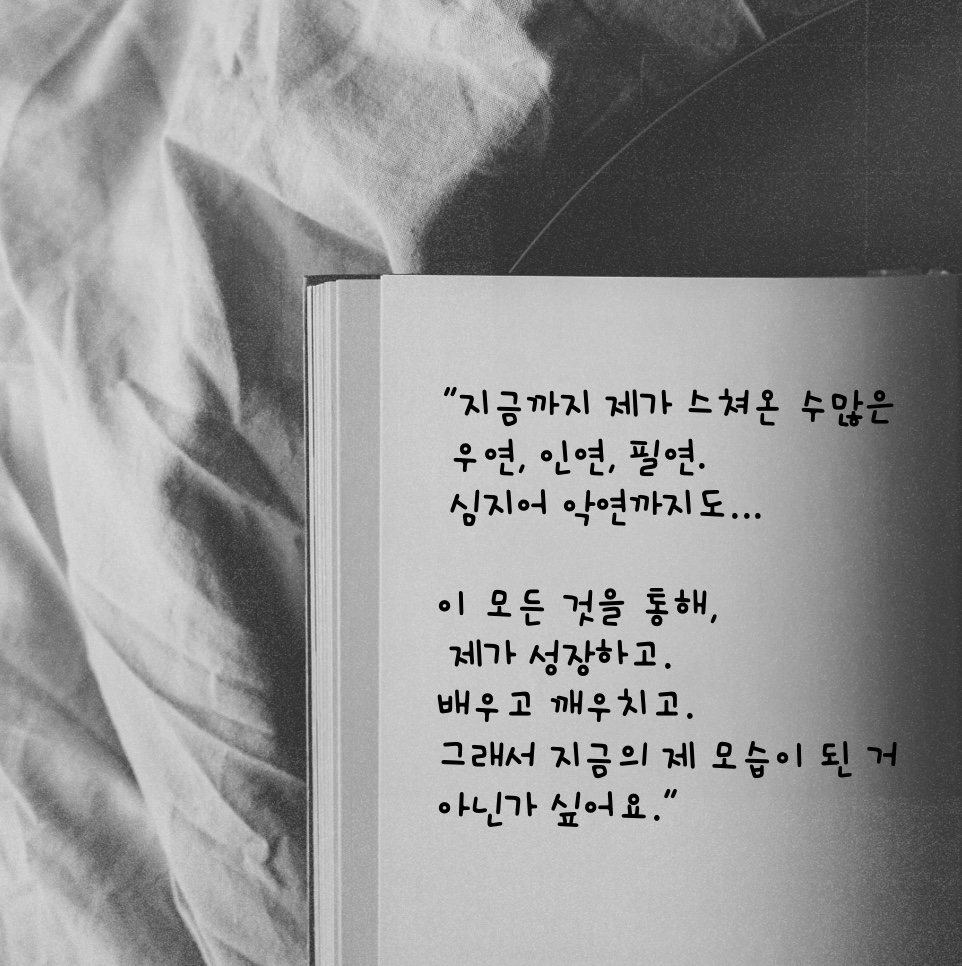 "지금까지 제가 스쳐온 수많은
우연, 인연, 필연.
심지어 악연까지도...
이 모든 것을 통해,
제가 성장하고.
배우고 깨우치고.
그래서 지금의 제 모습이 된 거
아닌가 싶어요."